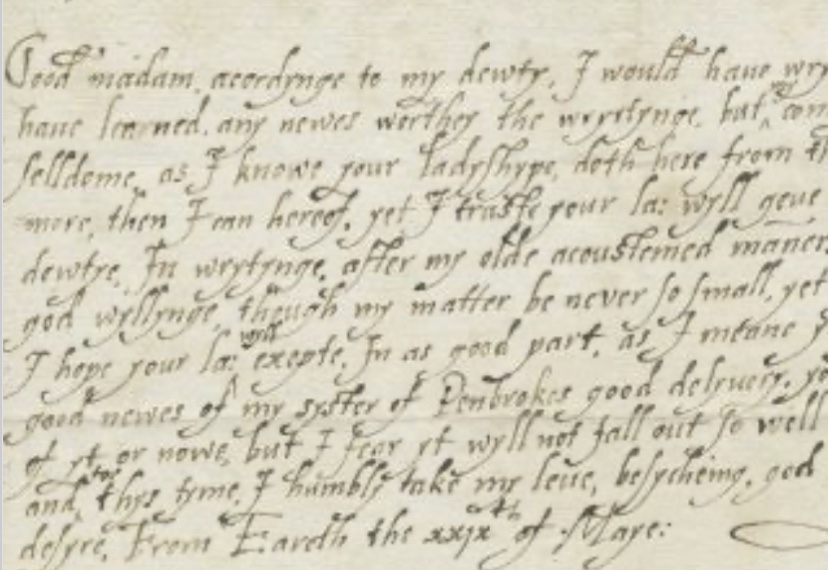 Good madam, acordynge to my dewty, I would have wry
have learned, any newes worthey the wrytynge, but my com
selldome, as I knowe your ladyshype, doth here from th
more, then I can hereof, yet I traste your la: wyll geue
dewtye, In wrytynge, after my olde acoustemed maner
god wyllynge, though my matter be never so small, yet
I hope your la: wyll exepte, In as good part, as I meane y
good newes of my syster of Penbrokes good delyuery, yo
of yt or nowe, but I fear yt wyll not fall out so well
and, thys tyme, I humbly take my leue, besycheing, god
desyre, From Eardh the xxix th of Maye: